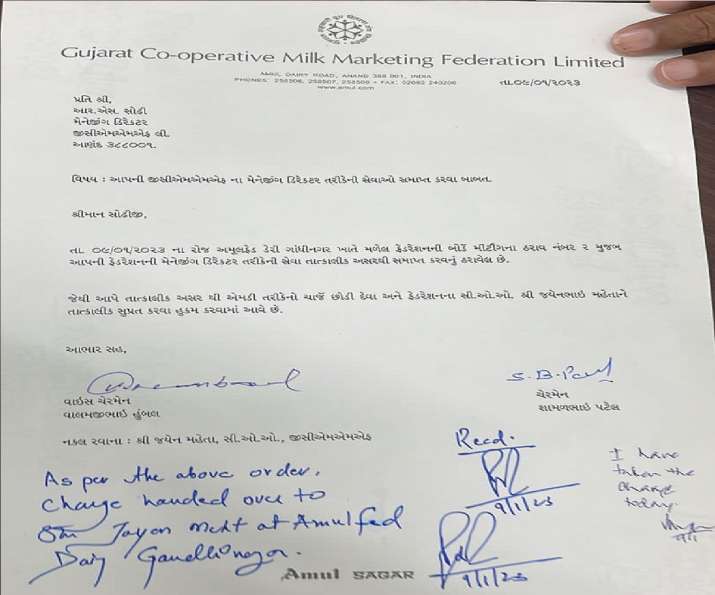 Gujarat Co-operative Milk Marketing Federation Limited
AMUL DAIRY ROAD, ANAND 388 001, INDIA
PHONES: 258506, 258507, 258508 • FAX: 02692 240208
www.amul.com
તા.૦૯/૦૧/૨૦૨૩
પ્રતિ શ્રી,
આર.એસ. સોઢી
મેનેજીંગ ડિરેકટર
જીસીએમએમએફ લી.
આણંદ ૩૮૮૦૦૧.
વિષય : આપની જીસીએમએમએફ ના મેનેજીંગ ડિરેકટર તરીકેની સેવાઓ સમાપ્ત કરવા બાબત.
શ્રીમાન સોઢીજી,
તા. ૦૯/૦૧/૨૦૨૩ ના રોજ અમૂલફેડ ડેરી ગાંધીનગર ખાતે મળેલ ફેડરેશનની બોર્ડ મીટીંગના ઠરાવ નંબર ૨ મુજબ
આપની ફેડરેશનની મેનેજીંગ ડિરેકટર તરીકેની સેવા તાત્કાલીક અસરથી સમાપ્ત કરવનું ઠરાવેલ છે.
જેથી આપે તાત્કાલીક અસર થી એમડી તરીકેનો ચાર્જ છોડી દેવા અને ફેડરેશનના સી.ઓ.ઓ. શ્રી જયેનભાઇ મહેતાને
તાત્કાલીક સુપ્રત કરવા હુકમ કરવામાં આવે છે.
આભાર સહ,
S.B. Patel
વાઇસ ચેરમેન
વાલમજીભાઇ હુંબલ
ચેરમેન
શામળભાઇ પટેલ
નકલ રવાના : શ્રી જયેન મહેતા, સી.ઓ.ઓ., જીસીએમએમએફ
Recd.
9/1/23
I have
taken the
charge
today.
9/1
As per the above order,
Charge handed over to
Shri Jayen Meht at Amulfed
Dairy Gandhinagar.
9/1/23
Amul SAGAR